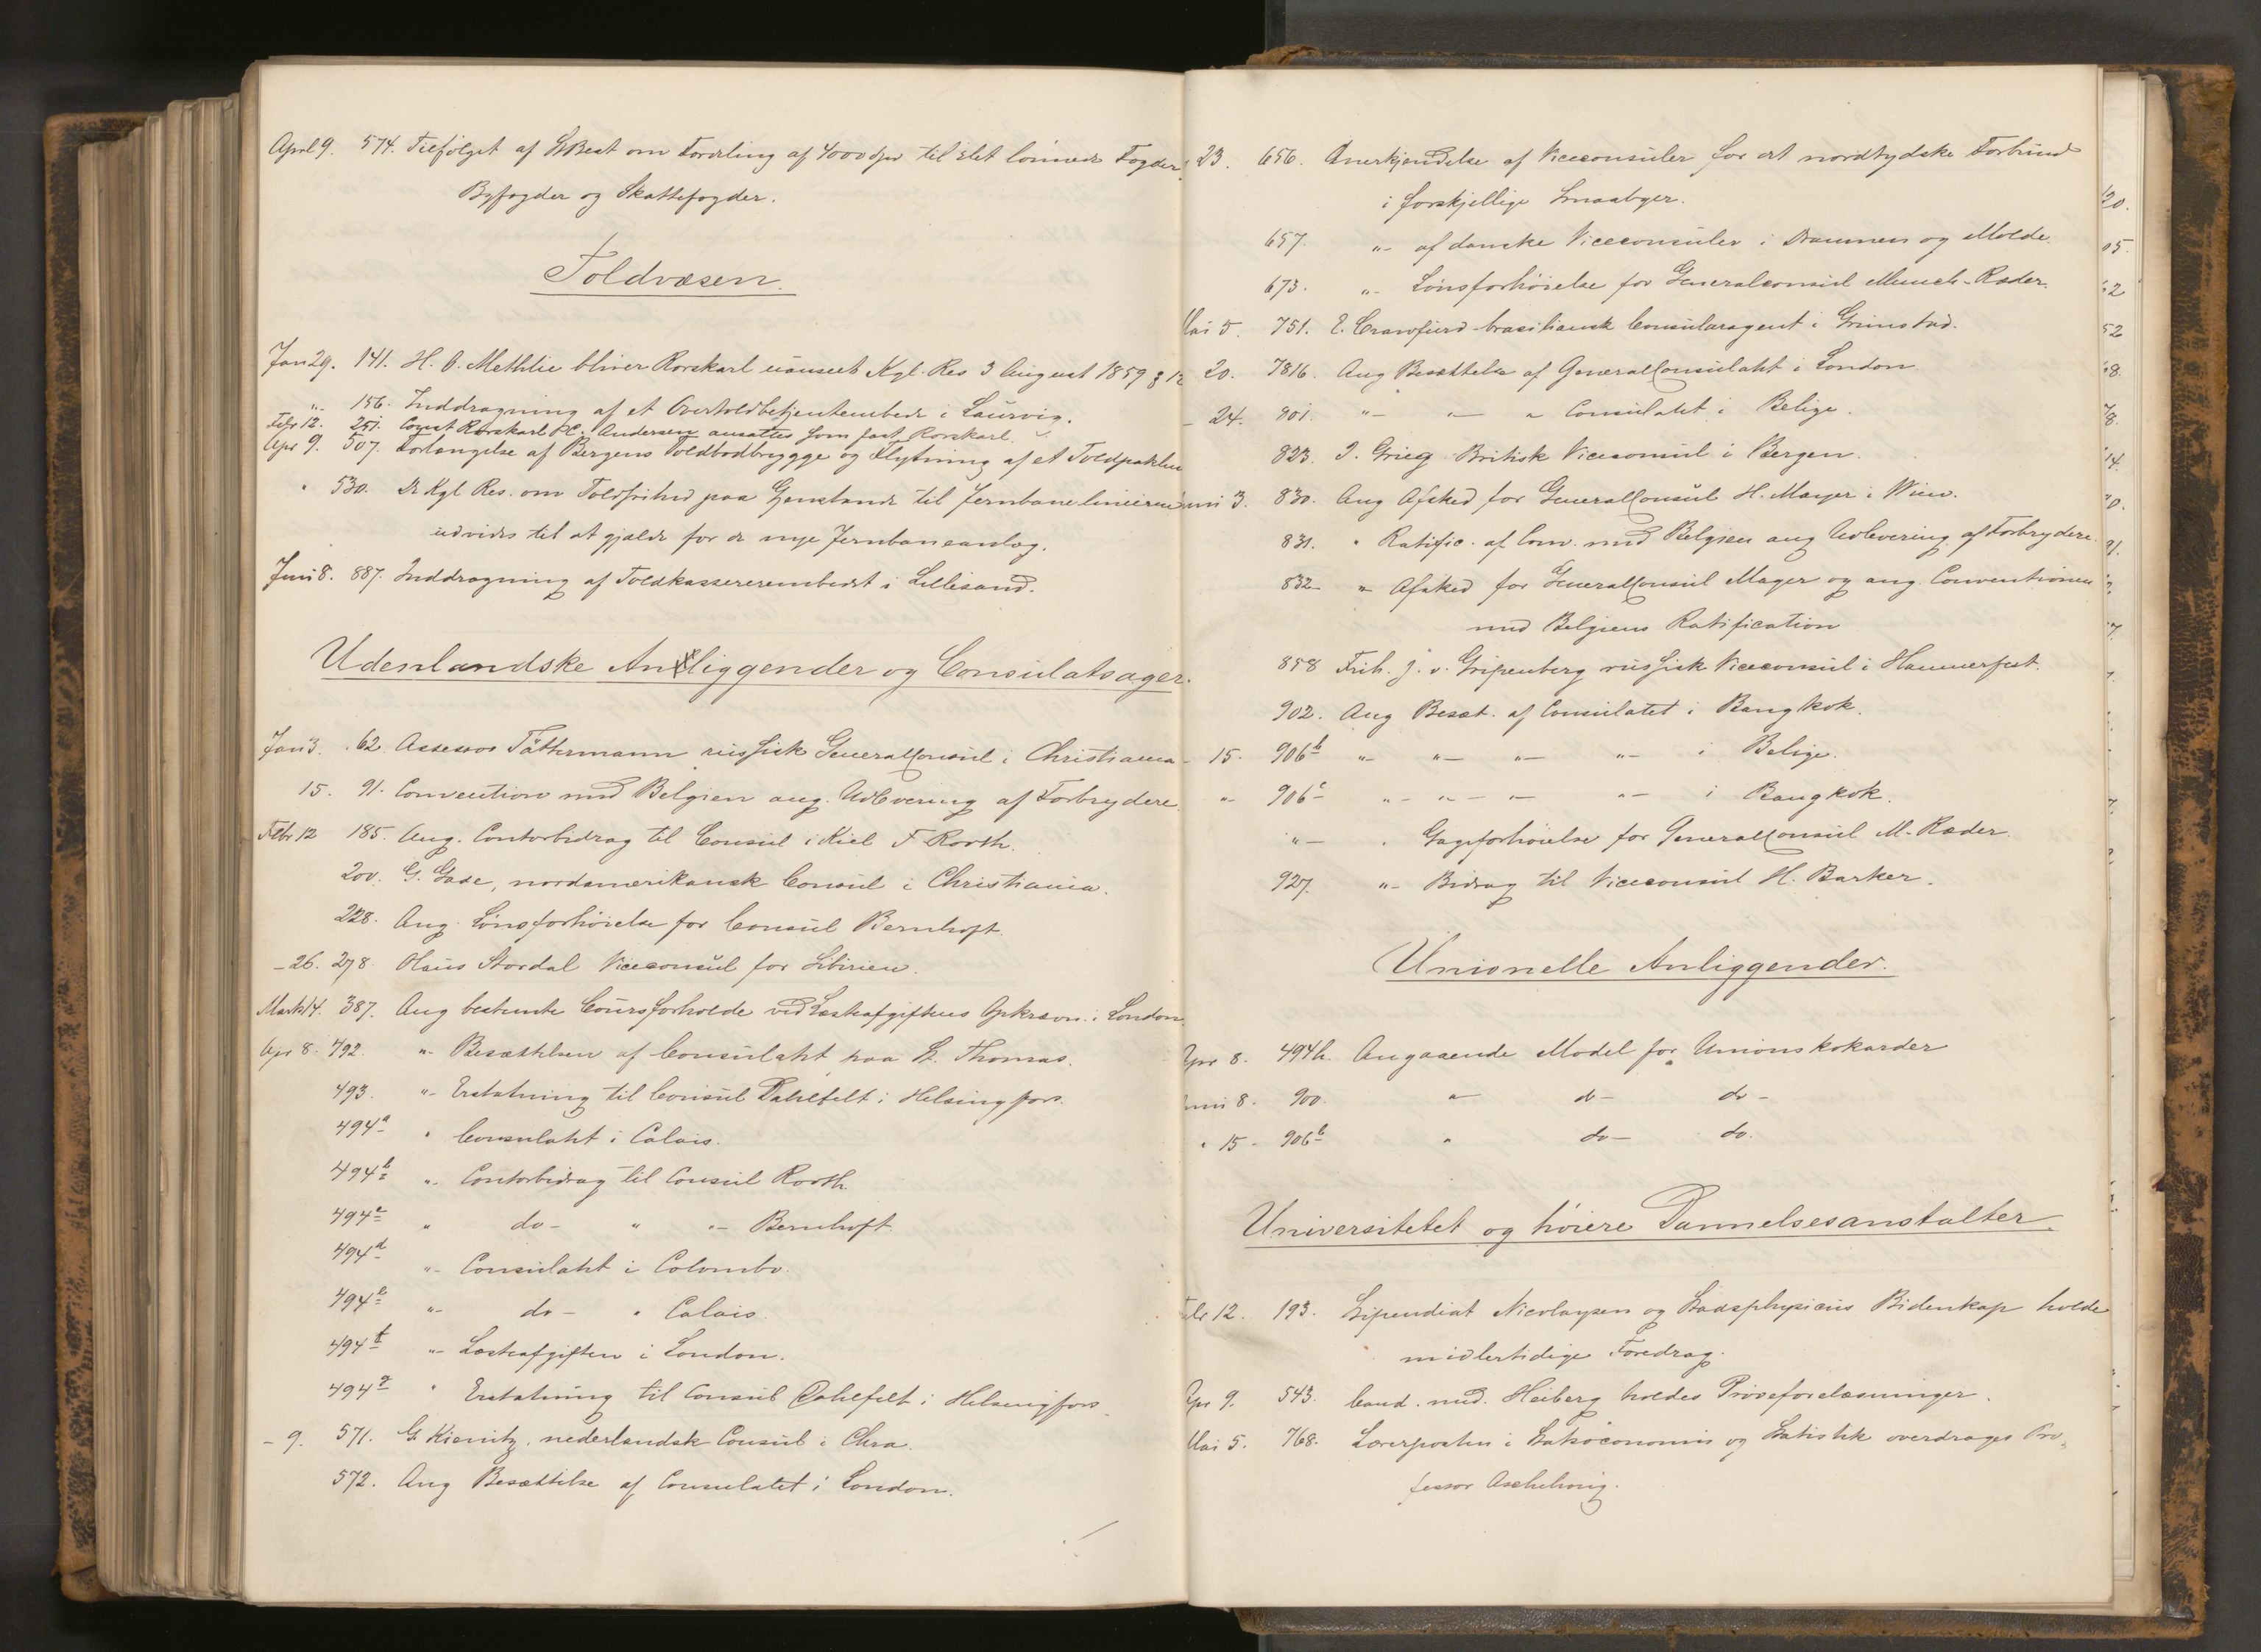 April 9. 574. Tilfølget af StBest om Fordeling af 4000 Spd til slet lönnede Fogder,
Byfogder og Skattefogder.
Toldvæsen.
Jan 29. 141. H. O. Methlie bliver Rorskarl uanseet Kgl. Res 3 August 1859 § 12
"- 156. Inddragning af et Overtoldbetjentembede i Laurvig.
Febr 12. 251. Const Rorskarl H.C. Andersen ansattes som fast Rorskarl.
Apr 9. 507. Forlængelse af Bergens Toldbodbrygge og Flytning af et Toldpakhus
" 530. De Kgl Res. om Toldfrihed paa Genstande til Jernbanelinierne
udvides til at gjælde for de nye Jernbaneanlæg.
Juni 8. 887. Inddragning af Toldkassererembedet i Lillesand.
Udenlandske Anliggender og Consulatsager.
Jan 3. 62. Assessor Tättermann russisk GeneralConsul i Christiania
15. 91. Convention med Belgien ang. Udlevering af Forbrydere
Febr 12 185. Ang. Contorbidrag til Consul i Kiel F Rooth.
200. G. Gade, nordamerikansk Consul i Christiania.
228. Ang. Lønsforhöielse for Consul Bernhoft.
- 26. 278. Olaus Stordal Viceconsul for Sibirien.
Marts 14. 387. Ang bestemte Coursforholde ved Læsteafgiftens Opkrævn. i London.
Apr 8. 492. "- Besættelsen af Consulatet paa St. Thomas.
493. "- Erstatning til Consul Dahlfelt i Helsingfors.
494a " Consulatet i Calais.
494b "- Contorbidrag til Consul Rooth
494c " do - " "- Bernhoft
494d "- Consulatet i Colombo.
494e "- do - " Calais.
494f "- Læsteafgiften i London.
494g " Erstatning til Consul Dahlfelt i Helsingfors
- 9. 571. G. Kiønitz, nederlandsk Consul i Chra.
572. Ang Besættelse af Consulatet i London.
23. 656. Anerkjendelse af Viceconsuler for det nordtydske Forbund
i forskjellige Smaabyer.
657. "- af danske Viceconsuler i Drammen og Molde.
673. "- Lønsforhöielse for Generalconsul Munch-Ræder.
Mai 5. 751. E. Crawfurd brasiliansk Consularagent i Grimstad.
20. 7816. Ang Besættelse af GeneralConsulatet i London
- 24. 801. "- "- " Consulatet i Belige.
823. J. Grieg Britisk Viceconsul i Bergen.
Juni 3. 830. Ang Afsked for GeneralConsul H. Mayer i Wien.
831. " Ratific. af Conv. med Belgien ang Udlevering af Forbrydere.
832- "- Afsked for GeneralConsul Mayer og ang. Conventionen
med Belgiens Ratification
858 Frih. J. v. Gripenberg russisk Viceconsul i Hammerfest.
902. Ang Besæt. af Consulatet i Bangkok.
- 15. 906b "- "- "- "- i Belige.
"- 906c "- "- "- "- i Bangkok.
"- . Gageforhöielse for GeneralConsul M. Ræder.
927. "- Bidrag til Viceconsul H. Barker.
Unionelle Anliggender.
Apr 8. 494h. Angaaende Model for Unionskokarder
Juni 8. 900. "- do - do -
" 15 - 906b " do - do.
Universitetet og höiere Dannelsesanstalter.
Febr 12. 193. Stipendiat Nicolaysen og Stadsphysicus Bidenkap holde
midlertidige Foredrag.
Apr 9. 543. Cand. med. Heiberg holdes Pröveforelæsninger.
Mai 5. 768. Lærerposten i Statsöconomi og Statistik overdrages Pro-
fessor Aschehoug.